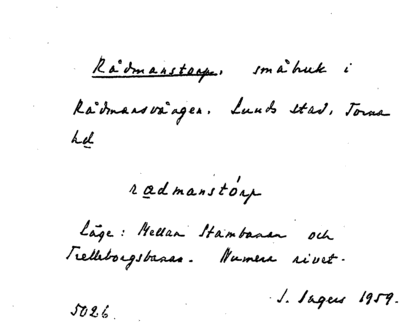 Rådmanstorp, småbruk i
Rådmansvången. Lunds stad, Torna
hd
radmanstórp
Läge: Mellan Stambanan och
Trelleborgsbanan. Numera rivet.
S. Ingers 1959.
5026.